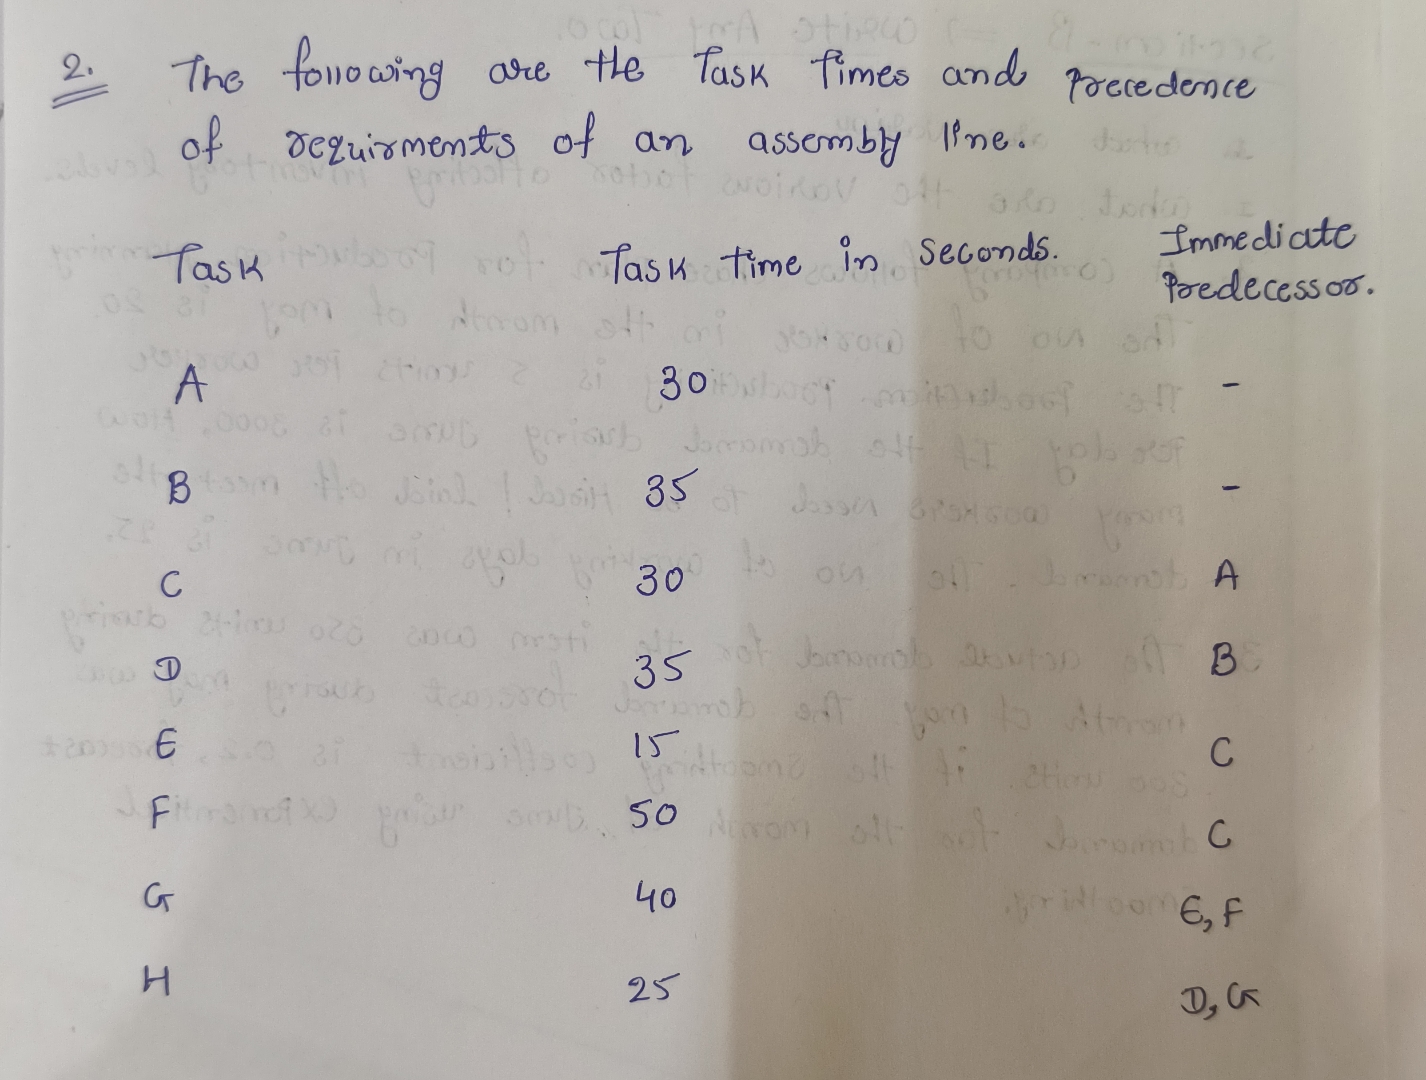 2. The following are the Task Times and Precedence
of requirments of an assembly line.
Task Task time in Seconds. Immediate Predecessor.
A 30 -
B 35 -
C 30 A
D 35 B
E 15 C
F 50 C
G 40 E, F
H 25 D, G